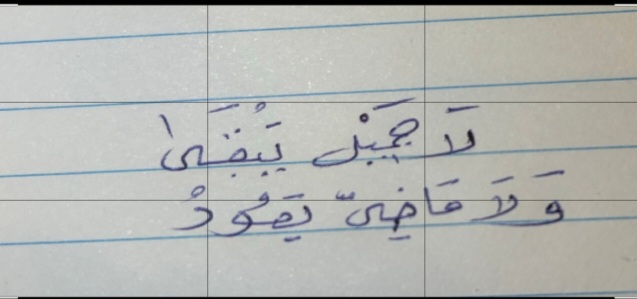 لَا جَمِيْل يَبْقَىٰ
وَلَا مَاضِيّ يَعُودْ